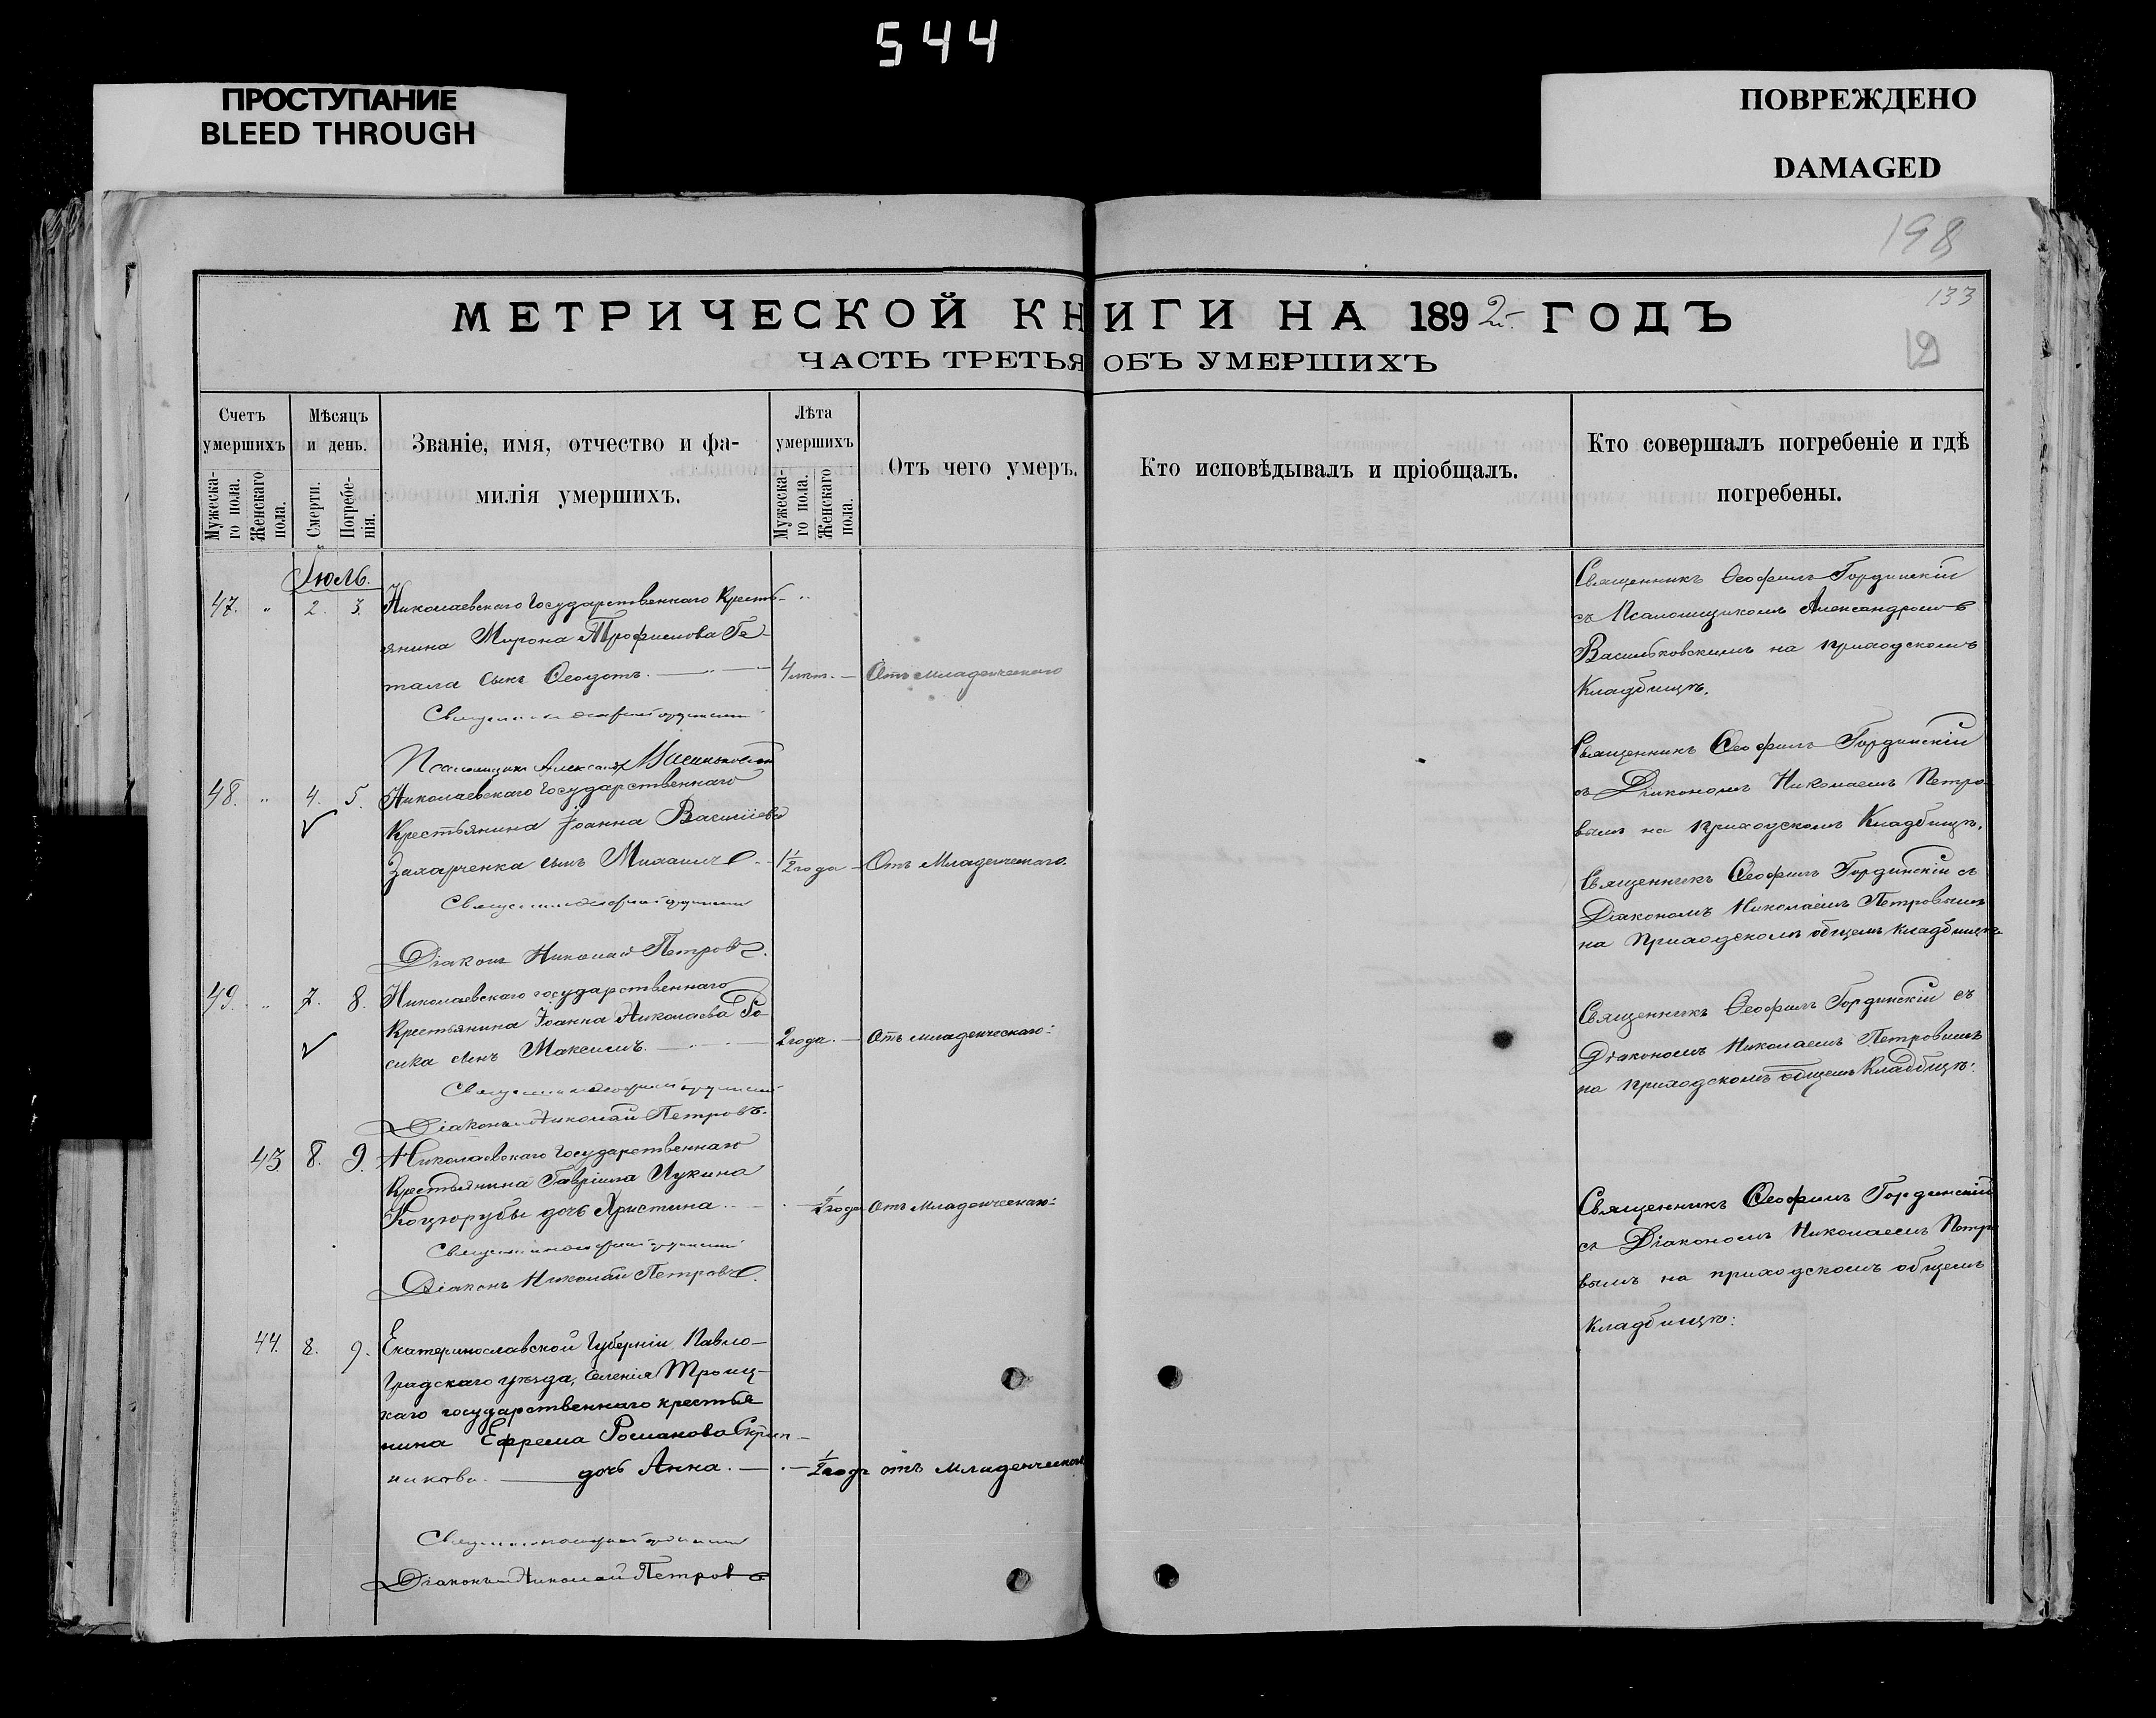 544
ПРОСТУПАНИЕ
BLEED THROUGH
ПОВРЕЖДЕНО
DAMAGED
198
133
МЕТРИЧЕСКОЙ КНИГИ НА 1892 ГОДЪ
ЧАСТЬ ТРЕТЬЯ ОБЪ УМЕРШИХЪ
Счетъ умершихъ
Мужеска-го пола.
Женскаго пола.
Мѣсяцъ и день.
Смерти.
Погребе-нія.
Званіе, имя, отчество и фа-
милія умершихъ.
Лѣта умершихъ
Мужеска-го пола.
Женскаго пола.
Отъ чего умеръ.
Кто исповѣдывалъ и пріобщалъ.
Кто совершалъ погребеніе и гдѣ
погребены.
Іюль.
47. " 2. 3. Николаевскаго Государственнаго Кресть-
янина Мирона Трофимова Ге-
тала сынъ Ѳеодотъ. 4 лѣт. Отъ младенческаго
Псаломщикъ Александръ Васильковскій
Священникъ Ѳеофилъ Гординскій
съ Псаломщикомъ Александромъ
Васильковскимъ на приходскомъ
Кладбищѣ.
48. " 4. 5. Николаевскаго Государственнаго
Крестьянина Іоанна Васильева
Захарченка сынъ Михаилъ 1½ года Отъ Младенческаго.
Діаконъ Николай Петровъ.
Священникъ Ѳеофилъ Гординскій
съ Діакономъ Николаемъ Петро
вымъ на приходскомъ Кладбищѣ.
Священникъ Ѳеофилъ Гординскій съ
Діакономъ Николаемъ Петровымъ
на приходскомъ общемъ кладбищѣ
49. " 7. 8. Николаевскаго государственнаго
Крестьянина Іоанна Николаева
сика сынъ Максимъ. 2 года. Отъ младенческаго:
Діаконъ Николай Петровъ.
Священникъ Ѳеофилъ Гординскій съ
Діакономъ Николаемъ Петровымъ
на приходскомъ общемъ Кладбищѣ.
43 8. 9. Николаевскаго Государственнаго
Крестьянина Гавріила Лукина
Коцюрубы дочь Христина ½ года Отъ Младенческаго:
Діаконъ Николай Петровъ.
Священникъ Ѳеофилъ Гординскій
съ Діакономъ Николаемъ Петро
вымъ на приходскомъ общемъ
Кладбищѣ:
44. 8. 9. Екатеринославской Губерніи Павло-
градскаго уѣзда, селенія Троиц-
каго государственнаго крестья
нина Ефрема Романова Скрип-
никова дочь Анна. ½ года отъ младенческаго
Діаконъ Николай Петровъ